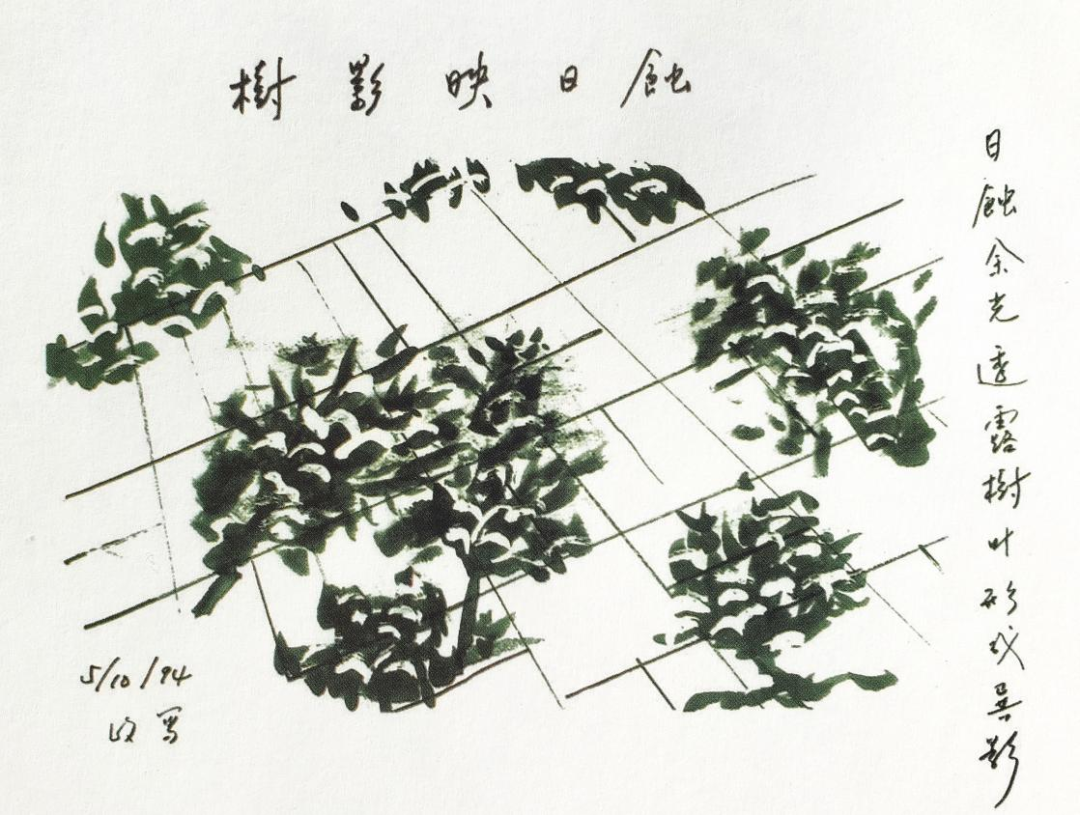 樹影映日蝕
日蝕余光透露樹叶形成異影
5/10/94
改写